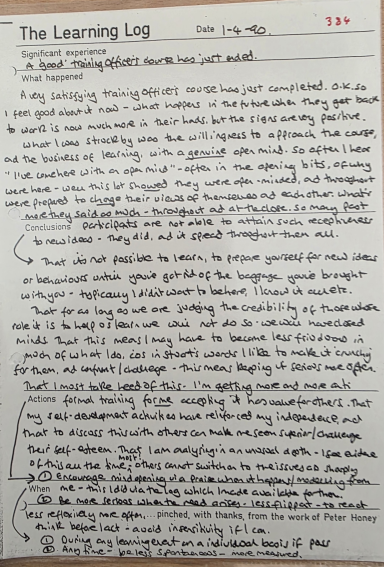 384
The Learning Log Date 1-4-90.
Significant experience
A 'good' training officer's course has just ended.
What happened
A very satisfying training officers course has just completed. O.K. so
I feel good about it now - what happens in the future when they get back
to work is now much more in their hands. but the signs are very positive.
What I was struck by was the willingness to approach the course,
and the business of learning, with a genuine open mind. So often I hear
"I've come here with an open mind" - often in the opening bits, of why
were here - well this lot showed they were open-minded, and throughout
were prepared to change their views of themselves and each other. What's
more they said as much - throughout and at the close. So many past
Conclusions participants are not able to attain such receptiveness
to new ideas - they did, and it spread throughout them all.
That it's not possible to learn, to prepare yourself for new ideas
or behaviours until you've got rid of the baggage you've brought
with you - typically I didn't want to be here, I know it all etc.
That for as long as we are judging the credibility of those whose
role it is to help us learn we will not do so - we will have closed
minds That this means I may have to become less frivolous in
much of what I do. cos in Stuart's words I like to make it crunchy
for them, and comfort/challenge - this means keeping it serious more often.
That I must take heed of this - I'm getting more and more anti
Actions formal training for me accepting it has value for others. That
my self-development activities have reinforced my independence, and
that to discuss this with others can make me seem superior/challenge
their self-esteem. That I am analysing in an unusual depth - I see evidence
of this all the time; most others cannot switch on to the issues so sharply
① Encourage mind opening via praise when it happens/modelling from
When me - this I did via the log which I made available for them.
② Be more serious when the need arises - less flippant - to react
less reflexively more often... pinched, with thanks, from the work of Peter Honey
think before I act - avoid insensitivity if I can.
① During any learning event on an individual basis if poss
② Any time - be less spontaneous - more measured.